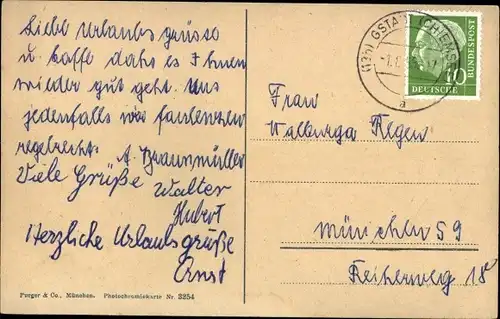 Liebe Urlaubsgrüsse
u. hoffe dass es Ihnen
wieder gut geht. Uns
jedenfalls wir faulenzen
regelrecht. A. Braunmüller
Viele Grüße Walter
Hubert
Herzliche Urlaubsgrüße
Ernst
Purger & Co., München. Photochromiekarte Nr. 3254
(13b) GSTADT (CHIEMSEE)
a
10
DEUTSCHE
BUNDESPOST
Frau
Walburga Regen
München 59
Reiherweg 18